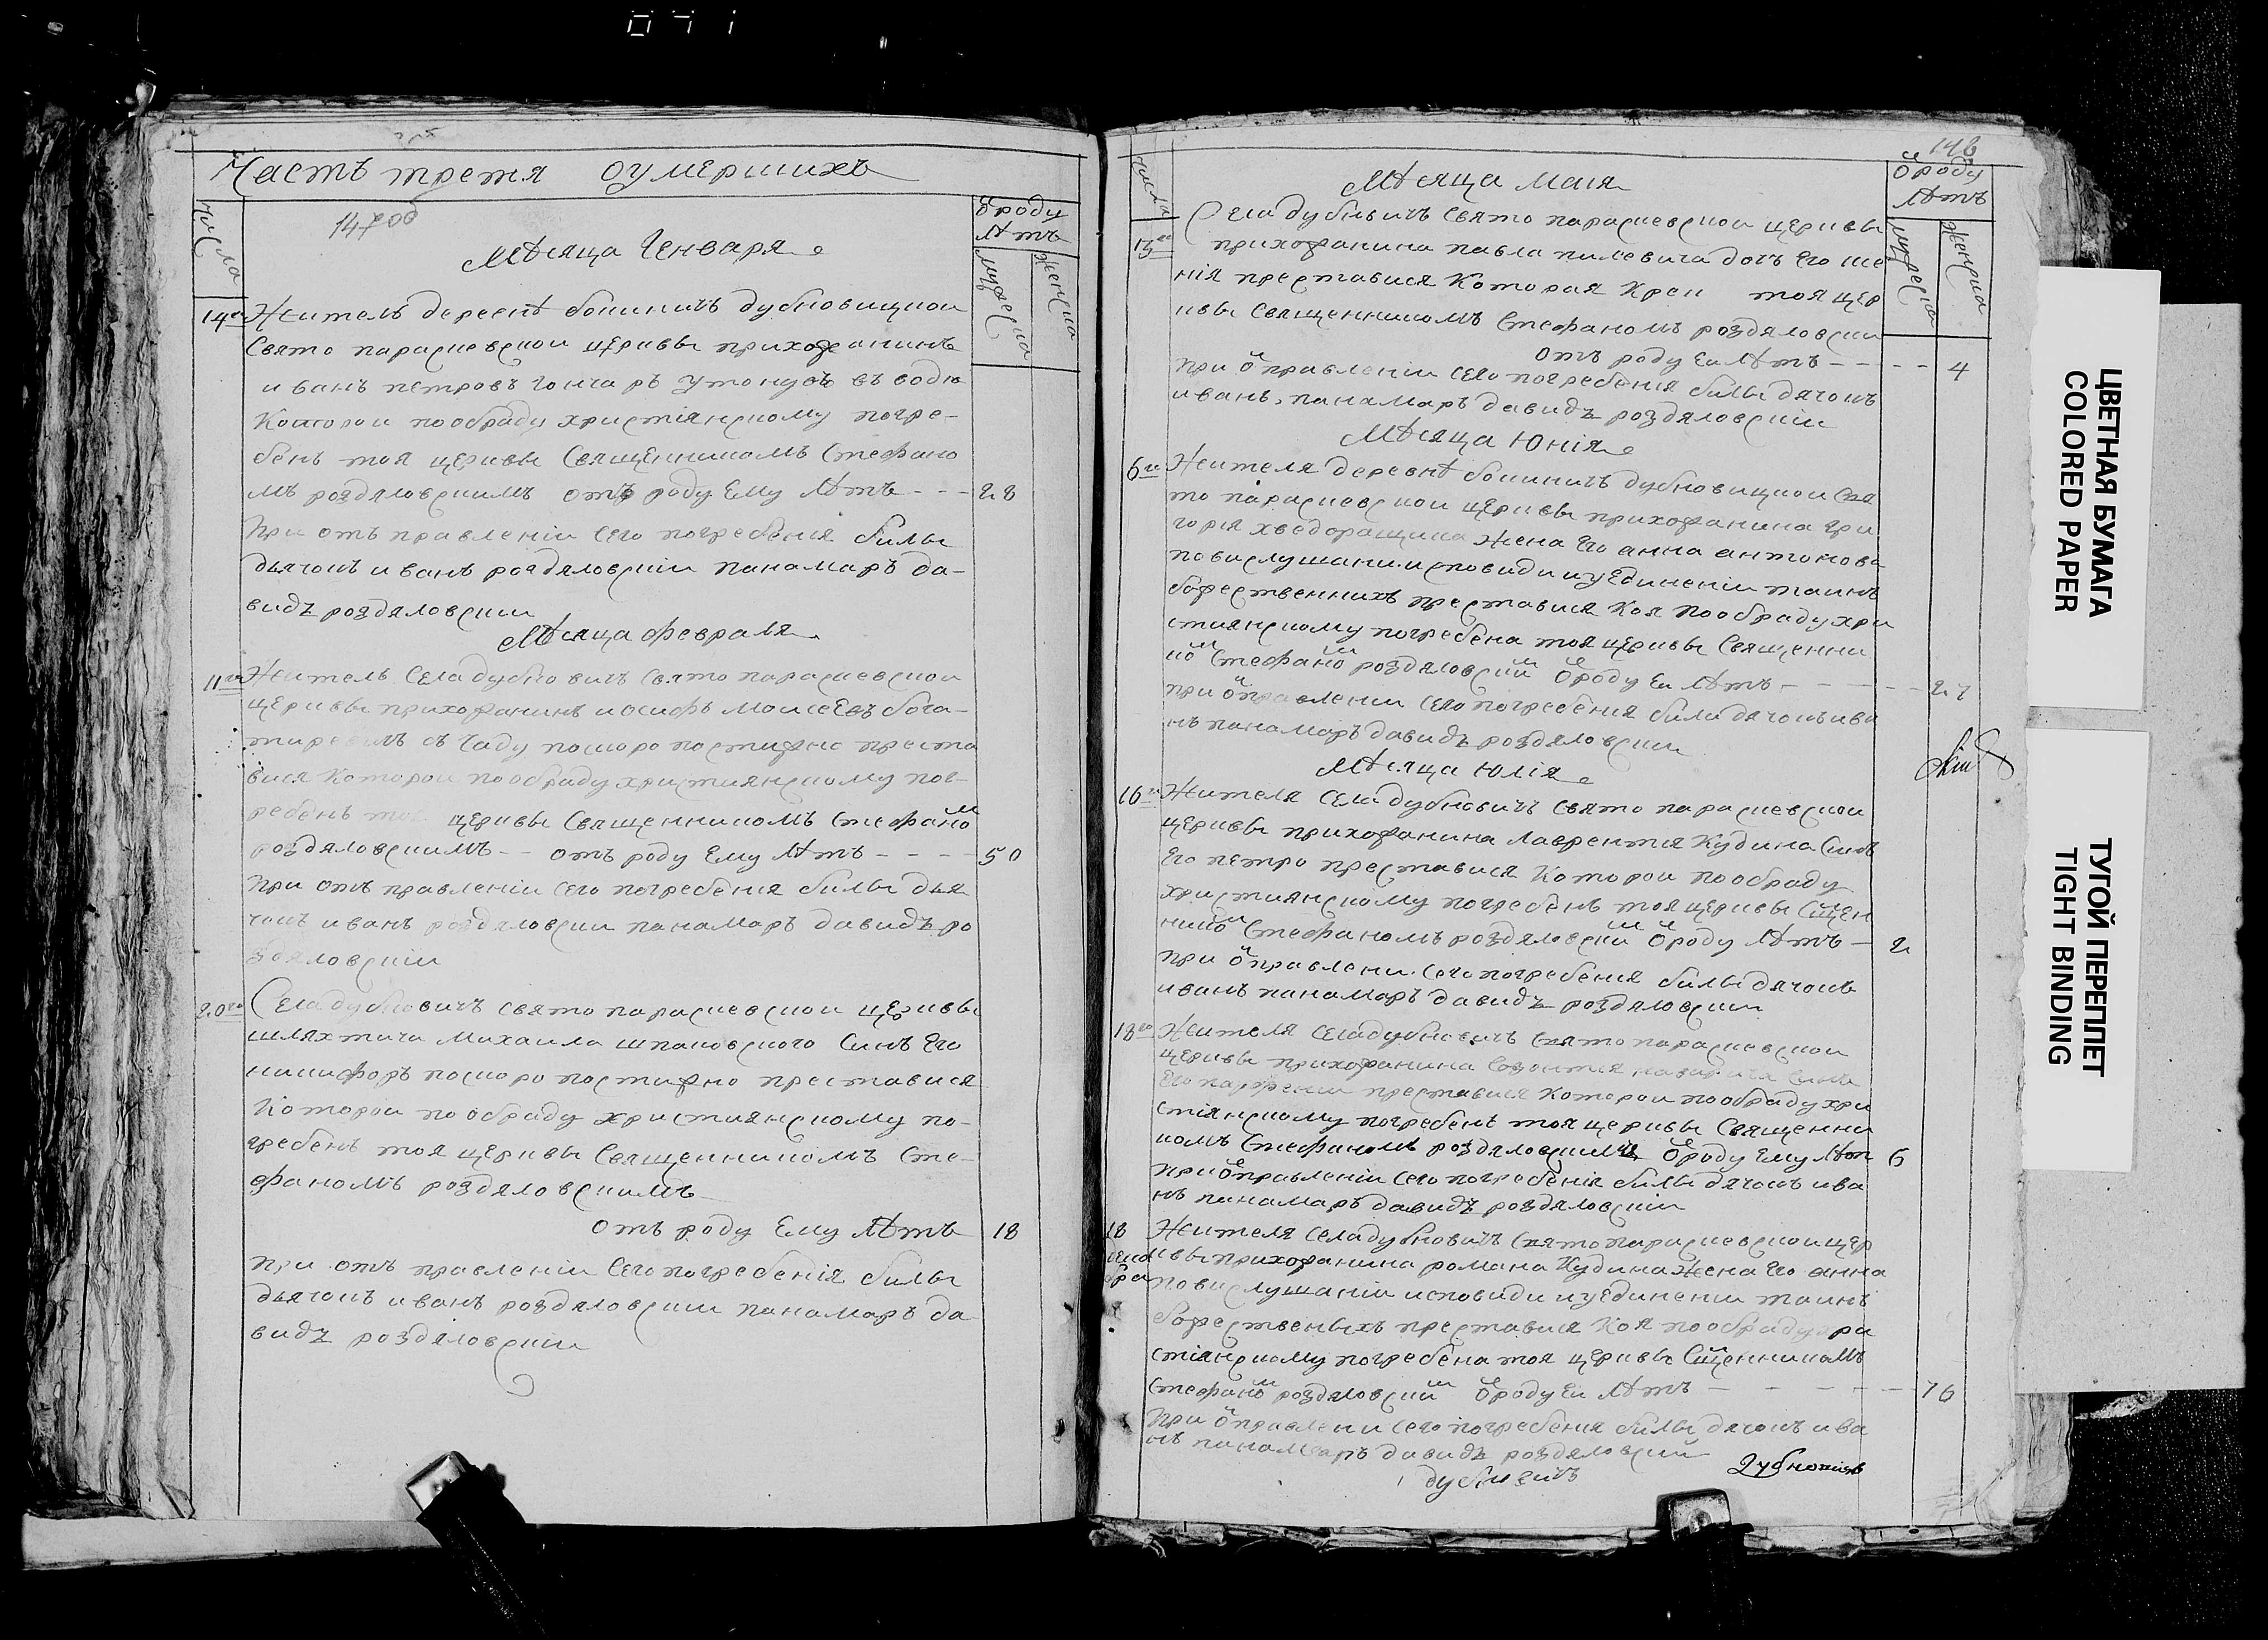 071
Часть третя оумершихъ
числа
147об
ѿ роду
лѣтъ
мужеска
женска
Мѣсяца Генваря
14го Житель деревнѣ бокиничъ дубновицкои
Свято параскевскои церкви прихожанинъ
иванъ петровъ гончаръ утонувъ въ водѣ
Которои пообраду христіянскому погре-
бенъ тоя церкви Священникомъ Стефано
мъ роздяловскимъ отъ роду Ему лѣтъ - - - 28
При отъ правленіи Сего погребенія били
дьячокъ иванъ роздяловскіи панамаръ да-
видъ роздяловскии
Мѣсяца февраля
11го Житель Села дубновичъ Свято параскевскои
церкви прихожанинъ иосифъ моисеевъ бога-
съ чаду поскоро постижно преста
вися Которои пообраду християнскому пог-
ребенъ тоя церкви Священникомъ Стефаном
роздяловскимъ - - отъ роду Ему лѣтъ - - - - 50
При отъ правленіи Сего погребенія били дья
чокъ иванъ роздяловскии панамаръ давидъ ро
здяловскіи
20го Села дубновичъ свято параскевскои церкви
шляхтича михаила шпаковского Синъ Его
никифоръ поскоро постижно преставися
Которои пообраду християнскому по-
гребенъ тоя церкви Священникомъ Сте-
фаномъ роздяловскимъ
отъ роду Ему лѣтъ 18
При отъ правленіи Сего погребенія били
дьячокъ иванъ роздяловскии панамаръ да
видъ роздяловскии
146
числа
ѿ роду
лѣтъ
мужеска
женска
Мѣсяца маія
13го Села дубновичъ Свято параскевскои церкви
прихожанина павла пилевича дочъ Его
преставися Которая Хрен тоя цер
кви Священникомъ Стефаномъ роздяловски
отъ роду Еи лѣтъ - - - - 4
при ѿправленіи Сего погребенія били дячокъ
иванъ, панамаръ давидъ роздяловскіи
Мѣсяца Юнія
6го Жителя деревнѣ бокиничъ дубновицкои Свя
то параскевскои церкви прихожанина гри
горія хведоращика жена Его анна антонова
повислушани исповиди изъединеніи таинъ
божественнихъ преставися Коя пообраду хри
стиянскому погребена тоя церкви Священни
ком Стефаном роздяловским ѿроду Еи лѣтъ - - - - 27
при ѿправлении Сего погребения били дячокъ ива
нъ панамаръ давидъ роздяловскии
Мѣсяца Юлія
16го Жителя Села дубновичъ свято параскевскои
церкви прихожанина лаврентия Кудина Синъ
Его петро преставися Которои пообраду
християнскому погребенъ тоя церкви Сщен
ником Стефаномъ роздяловским ѿроду лѣтъ - 2
при ѿправлени Сего погребения били дячокъ
иванъ панамаръ давидъ роздяловскии
18го Жителя Села дубновичъ Свято параскевскои
церкви прихожанина Созонтия Синъ
Его парфении преставися Которои пообраду хри
стіянскому погребенъ тоя церкви Священни
комъ Стефаномъ роздяловскимъ ѿроду Ему лѣт 6
при ѿправленіи Сего погребенія били дячокъ ива
нъ панамаръ давидъ роздяловскіи
18 декабра Жителя Села дубновичъ Свято параскевскои цер
кви прихожанина романа Кудина жена Его анна
повислушаніи исповиди изъединеніи таинъ
божественыхъ преставися Коя пообраду хри
стіянскому погребена тоя церкви Сщенникомъ
Стефаном роздяловским ѿроду Еи лѣтъ - - - - 76
При ѿправлени Сего погребения били дячокъ ива
нъ панамаръ давидъ роздяловскии
ЦВЕТНАЯ БУМАГА
COLORED PAPER
ТУГОЙ ПЕРЕПЛЕТ
TIGHT BINDING